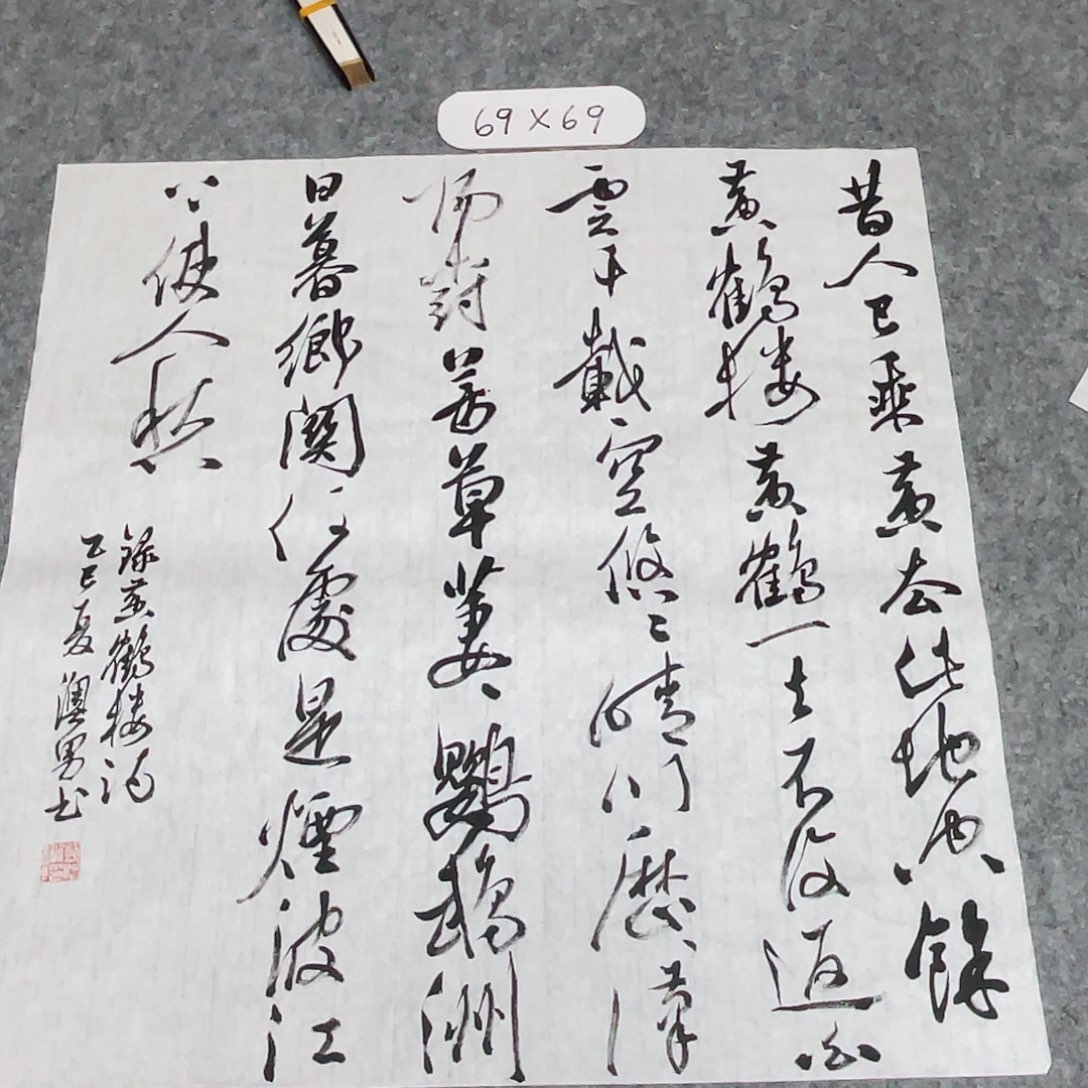 69×69
昔人已乘黄去此地空餘
黄鶴楼黄鶴一去不復返白
雲千載空悠々晴川歷々漢
陽樹芳草萋々鸚鵡洲
日暮鄉關何處是煙波江
上使人愁
錄黄鶴楼诗
乙巳夏 澳男书